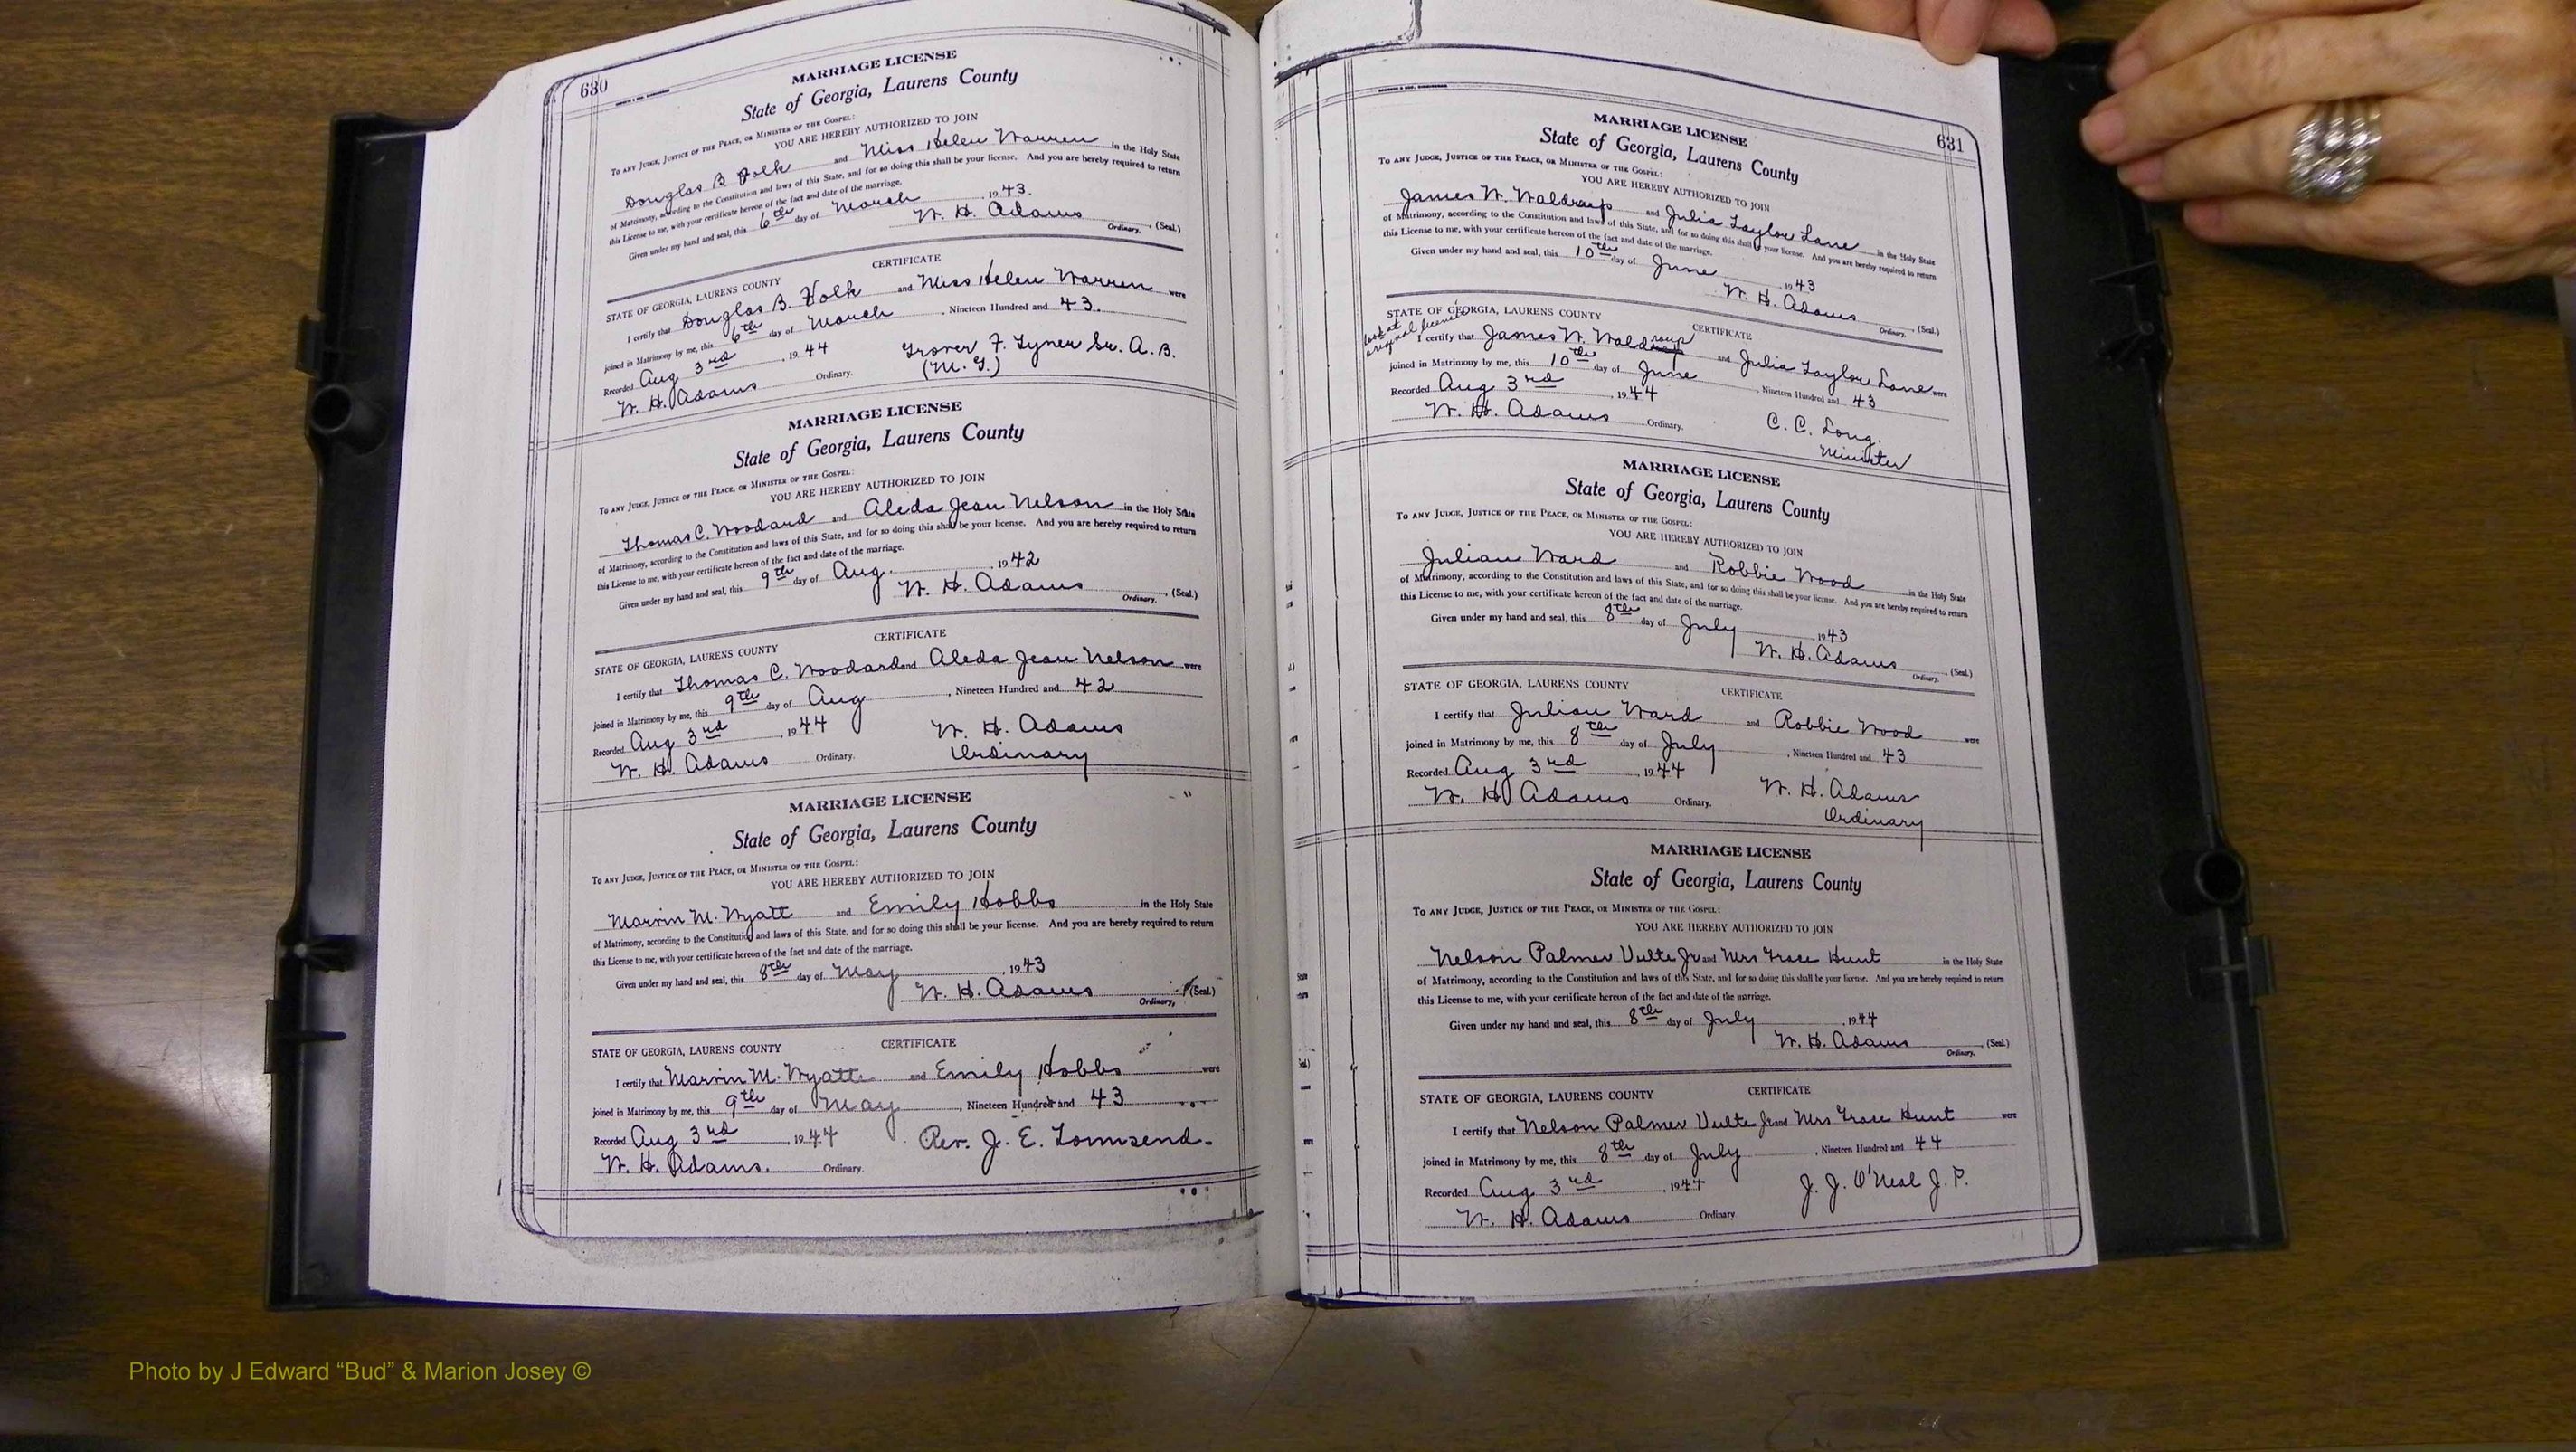 630
MARRIAGE LICENSE
State of Georgia, Laurens County
TO ANY JUDGE, JUSTICE OF THE PEACE, OR MINISTER OF THE GOSPEL:
YOU ARE HEREBY AUTHORIZED TO JOIN
Douglas B Polk and Miss Helen Warren in the Holy State
of Matrimony, according to the Constitution and laws of this State, and for so doing this shall be your license. And you are hereby required to return
this License to me, with your certificate hereon of the fact and date of the marriage.
Given under my hand and seal, this 6th day of March 1943.
W. H. Adams (Seal.)
Ordinary.
CERTIFICATE
STATE OF GEORGIA, LAURENS COUNTY
I certify that Douglas B. Polk and Miss Helen Warren were
joined in Matrimony by me, this 6th day of March, Nineteen Hundred and 43.
Recorded Aug 3rd, 1944 Grover F. Tyner Sr. A. B.
W. H. Adams Ordinary. (M. G.)
MARRIAGE LICENSE
State of Georgia, Laurens County
TO ANY JUDGE, JUSTICE OF THE PEACE, OR MINISTER OF THE GOSPEL:
YOU ARE HEREBY AUTHORIZED TO JOIN
Thomas C. Woodard and Aleda Jean Nelson in the Holy State
of Matrimony, according to the Constitution and laws of this State, and for so doing this shall be your license. And you are hereby required to return
this License to me, with your certificate hereon of the fact and date of the marriage.
Given under my hand and seal, this 9th day of Aug. 1942
W. H. Adams (Seal.)
Ordinary.
CERTIFICATE
STATE OF GEORGIA, LAURENS COUNTY
I certify that Thomas C. Woodard and Aleda Jean Nelson were
joined in Matrimony by me, this 9th day of Aug, Nineteen Hundred and 42
Recorded Aug 3rd, 1944 W. H. Adams
W. H. Adams Ordinary. Ordinary
MARRIAGE LICENSE
State of Georgia, Laurens County
TO ANY JUDGE, JUSTICE OF THE PEACE, OR MINISTER OF THE GOSPEL:
YOU ARE HEREBY AUTHORIZED TO JOIN
Marvin M. Wyatt and Emily Hobbs in the Holy State
of Matrimony, according to the Constitution and laws of this State, and for so doing this shall be your license. And you are hereby required to return
this License to me, with your certificate hereon of the fact and date of the marriage.
Given under my hand and seal, this 8th day of May, 1943
W. H. Adams (Seal.)
Ordinary,
STATE OF GEORGIA, LAURENS COUNTY CERTIFICATE
I certify that Marvin M. Wyatt and Emily Hobbs were
joined in Matrimony by me, this 9th day of May, Nineteen Hundred and 43
Recorded Aug 3rd, 1944 Rev. J. E. Townsend.
W. H. Adams. Ordinary.
631
MARRIAGE LICENSE
State of Georgia, Laurens County
TO ANY JUDGE, JUSTICE OF THE PEACE, OR MINISTER OF THE GOSPEL:
YOU ARE HEREBY AUTHORIZED TO JOIN
James W. Waldraup and Julia Taylor Lane in the Holy State
of Matrimony, according to the Constitution and laws of this State, and for so doing this shall be your license. And you are hereby required to return
this License to me, with your certificate hereon of the fact and date of the marriage.
Given under my hand and seal, this 10th day of June, 1943
W. H. Adams (Seal.)
Ordinary.
STATE OF GEORGIA, LAURENS COUNTY CERTIFICATE
look at original license
I certify that James W. Waldroup and Julia Taylor Lane were
joined in Matrimony by me, this 10th day of June, Nineteen Hundred and 43
Recorded Aug 3rd, 1944 C. C. Long.
W. H. Adams Ordinary. Minister
MARRIAGE LICENSE
State of Georgia, Laurens County
TO ANY JUDGE, JUSTICE OF THE PEACE, OR MINISTER OF THE GOSPEL:
YOU ARE HEREBY AUTHORIZED TO JOIN
Julian Ward and Robbie Wood in the Holy State
of Matrimony, according to the Constitution and laws of this State, and for so doing this shall be your license. And you are hereby required to return
this License to me, with your certificate hereon of the fact and date of the marriage.
Given under my hand and seal, this 8th day of July, 1943
W. H. Adams (Seal.)
Ordinary.
STATE OF GEORGIA, LAURENS COUNTY CERTIFICATE
I certify that Julian Ward and Robbie Wood were
joined in Matrimony by me, this 8th day of July, Nineteen Hundred and 43
Recorded Aug 3rd, 1944 W. H. Adams
W. H. Adams Ordinary. Ordinary
MARRIAGE LICENSE
State of Georgia, Laurens County
TO ANY JUDGE, JUSTICE OF THE PEACE, OR MINISTER OF THE GOSPEL:
YOU ARE HEREBY AUTHORIZED TO JOIN
Nelson Palmer Vulte Jr and Mrs Grace Hunt in the Holy State
of Matrimony, according to the Constitution and laws of this State, and for so doing this shall be your license. And you are hereby required to return
this License to me, with your certificate hereon of the fact and date of the marriage.
Given under my hand and seal, this 8th day of July, 1944
W. H. Adams (Seal.)
Ordinary.
STATE OF GEORGIA, LAURENS COUNTY CERTIFICATE
I certify that Nelson Palmer Vulte Jr and Mrs Grace Hunt were
joined in Matrimony by me, this 8th day of July, Nineteen Hundred and 44
Recorded Aug 3rd, 1944 J. J. O'Neal J. P.
W. H. Adams Ordinary
Photo by J Edward “Bud” & Marion Josey ©